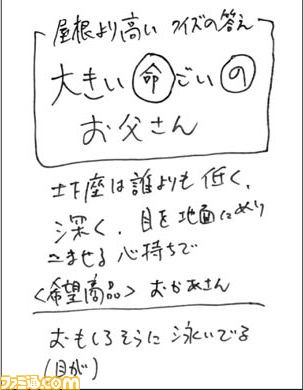 屋根より高い クイズの答え
大きい 命ごい の
お父さん
土下座は誰よりも 低く、
深く、目を地面にめり
こませる 心持ちで
<希望商品> おかあさん
おもしろそうに 泳いでる
(目が)
ファミ通.com